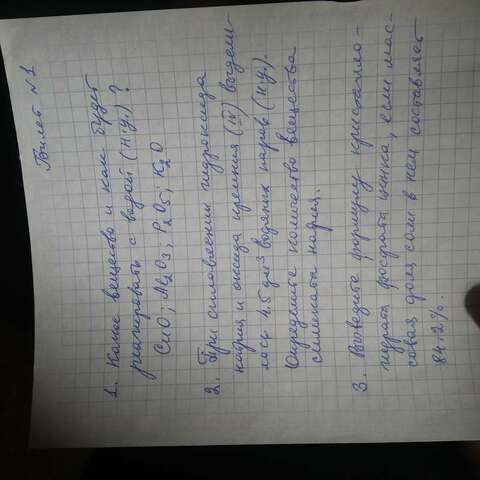 Билет №1
1. Какое вещество и как будет
реагировать с водой (н.у.)?
CuO; Al2O3; P2O5; K2O
2. При сплавлении гидроксида
натрия и оксида кремния (IV) выдели-
лось 4,5 дм³ водяных паров (н.у.).
Определите количество вещества
силиката натрия.
3. Выведите формулу кристалло-
гидрата фосфата цинка, если мас-
совая доля соли в нем составляет
84,2%.